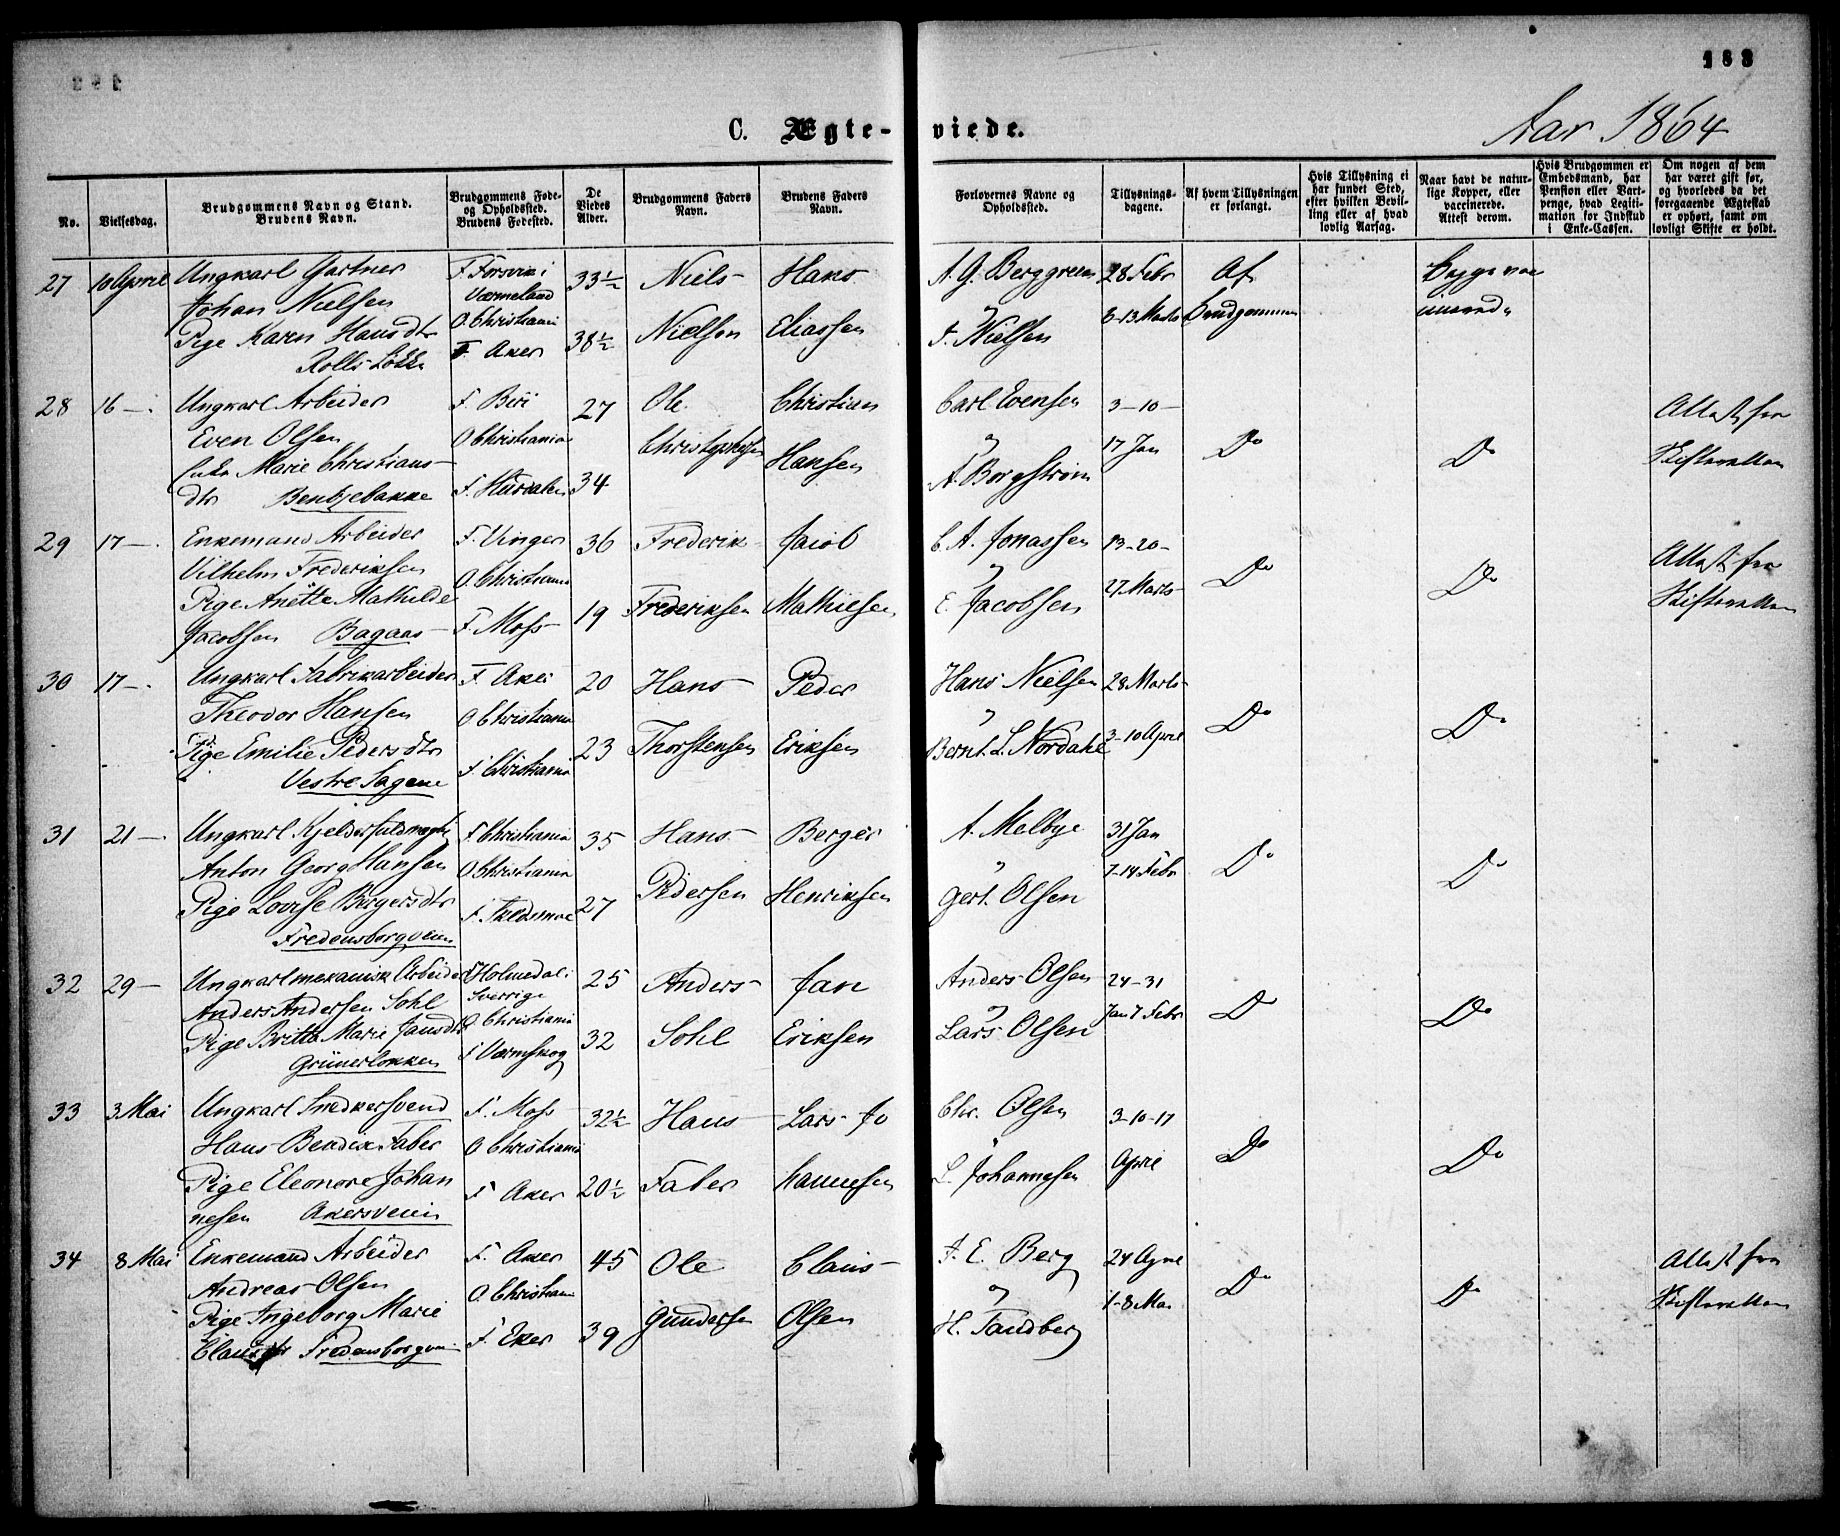 183
C. Ægte-viede.
Aar 1864
No.
Vielsesdag.
Brudgommens Navn og Stand.
Brudens Navn.
Brudgommens Føde-
og Opholdssted.
Brudens Fødested.
De
Viedes
Alder.
Brudgommens Faders
Navn.
Brudens Faders
Navn.
Forlovernes Navne og
Opholdssted.
Tillysnings-
dagene.
Af hvem Tillysningen
er forlangt.
Hvis Tillysning ei
har fundet Sted,
efter hvilken Bevil-
ling eller af hvad
lovlig Aarsag.
Naar havt de natur-
lige Kopper, eller
vaccinerede.
Attest derom.
Hvis Brudgommen er
Embedsmand, har
Pension eller Vart-
penge, hvad Legiti-
mation for Indskud
i Enke-Cassen.
Om nogen af dem
har været gift før,
og hvorledes da det
foregaaende Ægteskab
er ophørt, samt om
lovligt Skifte er holdt.
27 10 April Ungkarl Gartner F. Forsvik i 33½ Niels Hans A. G. Berggreen 28 Febr Af Begge vac
Johan Nielsen Værmeland
O. Christiania
Pige Karen Hansdtr F. Aker 38½ Nielsen Eliassen og J. Nielsen 6-13 Marts Brudgommen
Rolls Løkke
28 16 — Ungkarl Arbeider F. Biri 27 Ole Christian Carl Evensen 3-10- Attest fra
Even Olsen O Christiania Christophersen Hansen og 17 Jan Do Do Skifteretten
Marie Christians-
dtr Bentzebakke F. Hurdalen 34 A. Borgstrøm
29 17 — Enkemand Arbeider F. Vinger 36 Frederik Jacob C. A. Jonassen 13-20- Attest fra
Vilhelm Frederiksen O. Christiania og 27 Marts Do Do Skifteretten
Pige Anette Mathilde 19 Frederiksen Mathiesen E. Jacobsen
Jacobsen Bagaas F. Moss
30 17 — Ungkarl Fabrikarbeider F Aker 20 Hans Peder Hans Nielsen 28 Marts
Theodor Hansen O Christiania og Do Do
Pige Emilie Pedersdtr F. Christiania 23 Thorstensen Eriksen Bernt L. Nordahl 3-10 April
Vestre Sagene
31 21 — Ungkarl Kjelderfuldmægtig F. Christiania 35 Hans Berger A. Melbye 31 Jan
Anton Georg Hansen O Christiania og 7-14 Febr Do Do
Pige Lovise Birgersdtr F. Skedsmoe 27 Pedersen Henriksen Gert. Olsen
Fredensborgveien
32 29 — Ungkarl mekanisk Arbeider F Holmedal i 25 Anders Jan Anders Olsen 24-31
Anders Andersen Sohl Sverrige
O Christiania og Jan 7 Febr Do Do
Pige Britta Marie Jansdtr F Værmskog 32 Sohl Eriksen Lars Olsen
Grünerløkken
33 3 Mai Ungkarl Snedkersvend F. Moss 32½ Hans Lars Jo Chr. Olsen 3-10-17
Hans Bendix Faber O Christiania April Do Do
Pige Eleonore Johan F Aker 20½ Faber hannesen L. Johannesen
nesen Akersveien
34 8 Mai Enkemand Arbeider F. Aker 45 Ole Claus J. E. Berg 24 April Attest fra
Andreas Olsen O. Christiania og 1-8 Mai Do Do Skifteretten
Pige Ingeborg Marie F. Eker 39 Gundersen Olsen H. Sandberg
Clausdtr Fredensborgvei